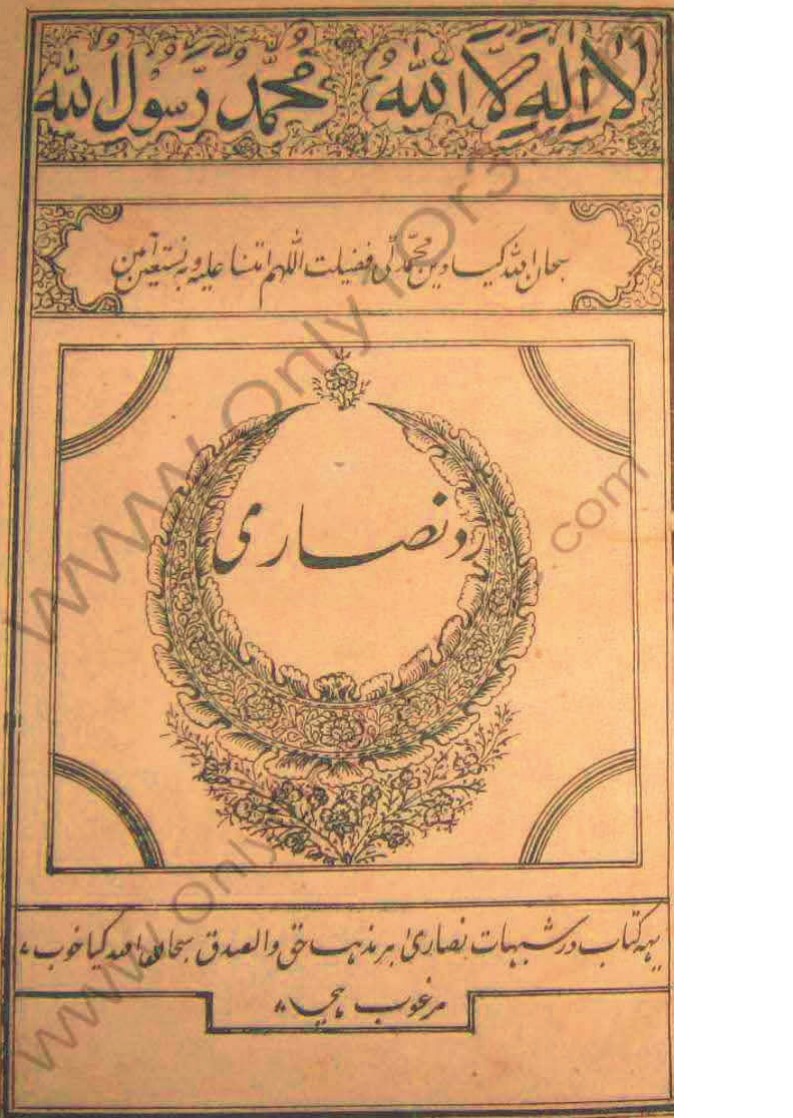 لا اله الا الله محمد رسول الله
سبحان الله کیا دین محمد کی فضیلت اللهم اتنا علیه و به نستعین آمین
رد نصاری
یہہ کتاب در شبہات نصاریٰ بر مذہب حق والصدق سبحان الله کیا خوب
مرغوب ہی
www.Only1Or3.com
www.Only1Or3.com